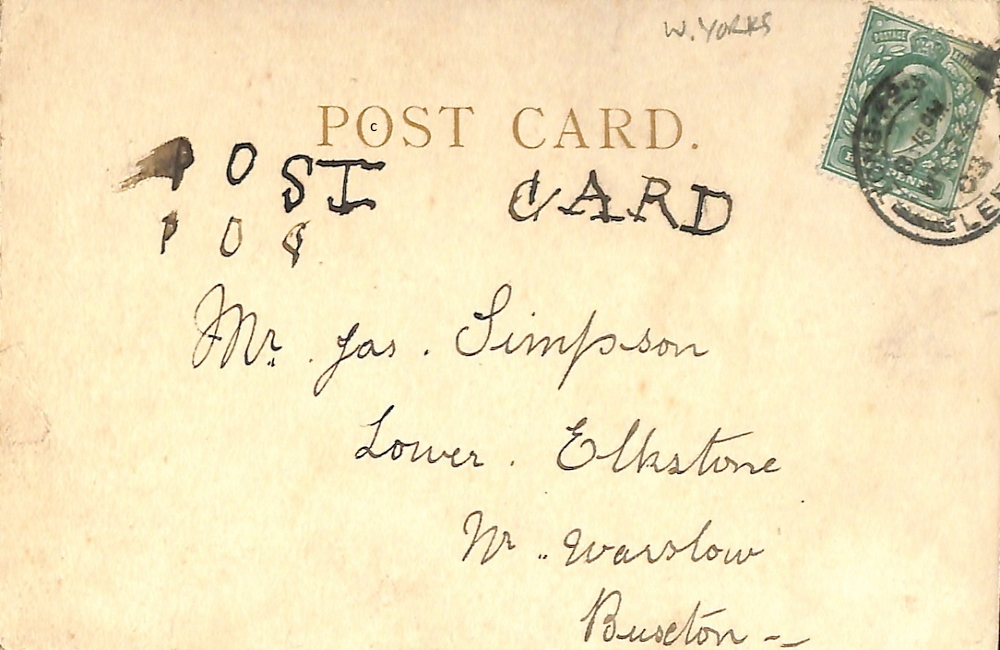 W. YORKS
POST CARD.
c
POST CARD
P O S
Mr. Jas. Simpson
Lower. Elkstone
Nr. Warslow
Buxton
POSTAGE